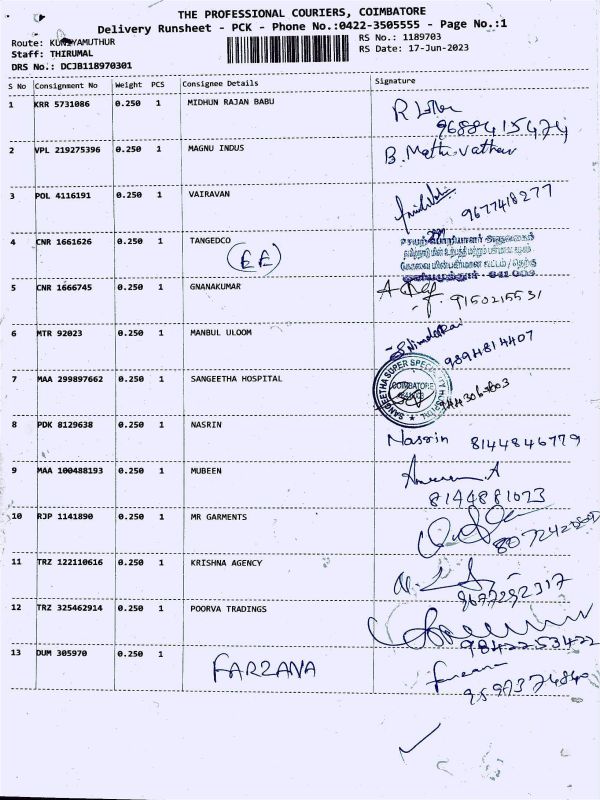 THE PROFESSIONAL COURIERS, COIMBATORE
Delivery Runsheet - PCK - Phone No.:0422-3505555 - Page No.:1
Route: KUNIYAMUTHUR
Staff: THIRUMAL
DRS No.: DCJB118970301
RS No.: 1189703
RS Date: 17-Jun-2023
S No Consignment No Weight PCS Consignee Details Signature
1 KRR 5731086 0.250 1 MIDHUN RAJAN BABU
2 VPL 219275396 0.250 1 MAGNU INDUS
3 POL 4116191 0.250 1 VAIRAVAN 9677418277
4 CNR 1661626 0.250 1 TANGEDCO
(EE)
5 CNR 1666745 0.250 1 GNANAKUMAR 9150215531
6 MTR 92023 0.250 1 MANBUL ULOOM 9894814407
7 MAA 299897662 0.250 1 SANGEETHA HOSPITAL
SANGEETHA SUPER SPECIALITY HOSPITAL
COIMBATORE
8 PDK 8129638 0.250 1 NASRIN Nasrin 8144846779
9 MAA 100488193 0.250 1 MUBEEN
8144881073
10 RJP 1141890 0.250 1 MR GARMENTS
11 TRZ 122110616 0.250 1 KRISHNA AGENCY
9677292317
12 TRZ 325462914 0.250 1 POORVA TRADINGS
9842253422
13 DUM 305970 0.250 1 FARZANA